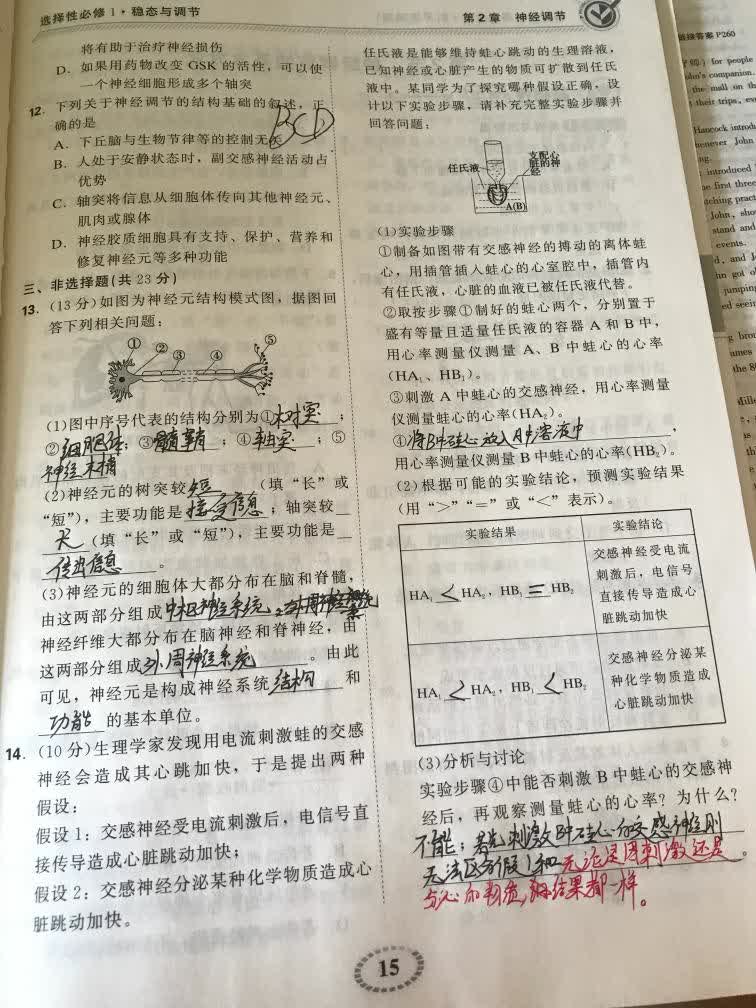 选择性必修1·稳态与调节
第2章 神经调节
将有助于治疗神经损伤
D．如果用药物改变 GSK 的活性，可以使
一个神经细胞形成多个轴突
12．下列关于神经调节的结构基础的叙述，正
确的是
BCD
A．下丘脑与生物节律等的控制无关
B．人处于安静状态时，副交感神经活动占
优势
C．轴突将信息从细胞体传向其他神经元、
肌肉或腺体
D．神经胶质细胞具有支持、保护、营养和
修复神经元等多种功能
三、非选择题(共23分)
13．(13分)如图为神经元结构模式图，据图回
答下列相关问题：
① ② ③ ④ ⑤
(1)图中序号代表的结构分别为①树突；
②细胞体；③髓鞘；④轴突；⑤
神经末梢
(2)神经元的树突较短(填“长”或
“短”)，主要功能是接受信息；轴突较
长(填“长”或“短”)，主要功能是
传出信息。
(3)神经元的细胞体大部分布在脑和脊髓，
由这两部分组成中枢神经系统。
神经纤维大都分布在脑神经和脊神经，由
这两部分组成外周神经系统。由此
可见，神经元是构成神经系统结构和
功能的基本单位。
14．(10分)生理学家发现用电流刺激蛙的交感
神经会造成其心跳加快，于是提出两种
假设：
假设1：交感神经受电流刺激后，电信号直
接传导造成心脏跳动加快；
假设2：交感神经分泌某种化学物质造成心
脏跳动加快。
任氏液是能够维持蛙心跳动的生理溶液，
已知神经或心脏产生的物质可扩散到任氏
液中。某同学为了探究哪种假设正确，设
计以下实验步骤，请补充完整实验步骤并
回答问题：
任氏液
支配心
脏的神
经
A(B)
(1)实验步骤
①制备如图带有交感神经的搏动的离体蛙
心，用插管插入蛙心的心室腔中，插管内
有任氏液，心脏的血液已被任氏液代替。
②取按步骤①制好的蛙心两个，分别置于
盛有等量且适量任氏液的容器 A 和 B 中，
用心率测量仪测量 A、B 中蛙心的心率
(HA₁、HB₁)。
③刺激 A 中蛙心的交感神经，用心率测量
仪测量蛙心的心率(HA₂)。
④将B中蛙心放入A中溶液中，
用心率测量仪测量 B 中蛙心的心率(HB₂)。
(2)根据可能的实验结论，预测实验结果
(用“>”“=”或“<”表示)。
实验结果 实验结论
HA₁<HA₂，HB₁=HB₂
交感神经受电流
刺激后，电信号
直接传导造成心
脏跳动加快
HA₁<HA₂，HB₁<HB₂
交感神经分泌某
种化学物质造成
心脏跳动加快
(3)分析与讨论
实验步骤④中能否刺激 B 中蛙心的交感神
经后，再观察测量蛙心的心率？为什么？
不能；若先刺激B中蛙心的交感神经则
无法区分假1和 无论是因刺激还是
的物质，结果都一样。
15
接答案 P260
for people
John's companion
the mall on th
their trips, ev
Hancock introd
henever John
introduced
first three
John, sho
stand and
events.
jumping